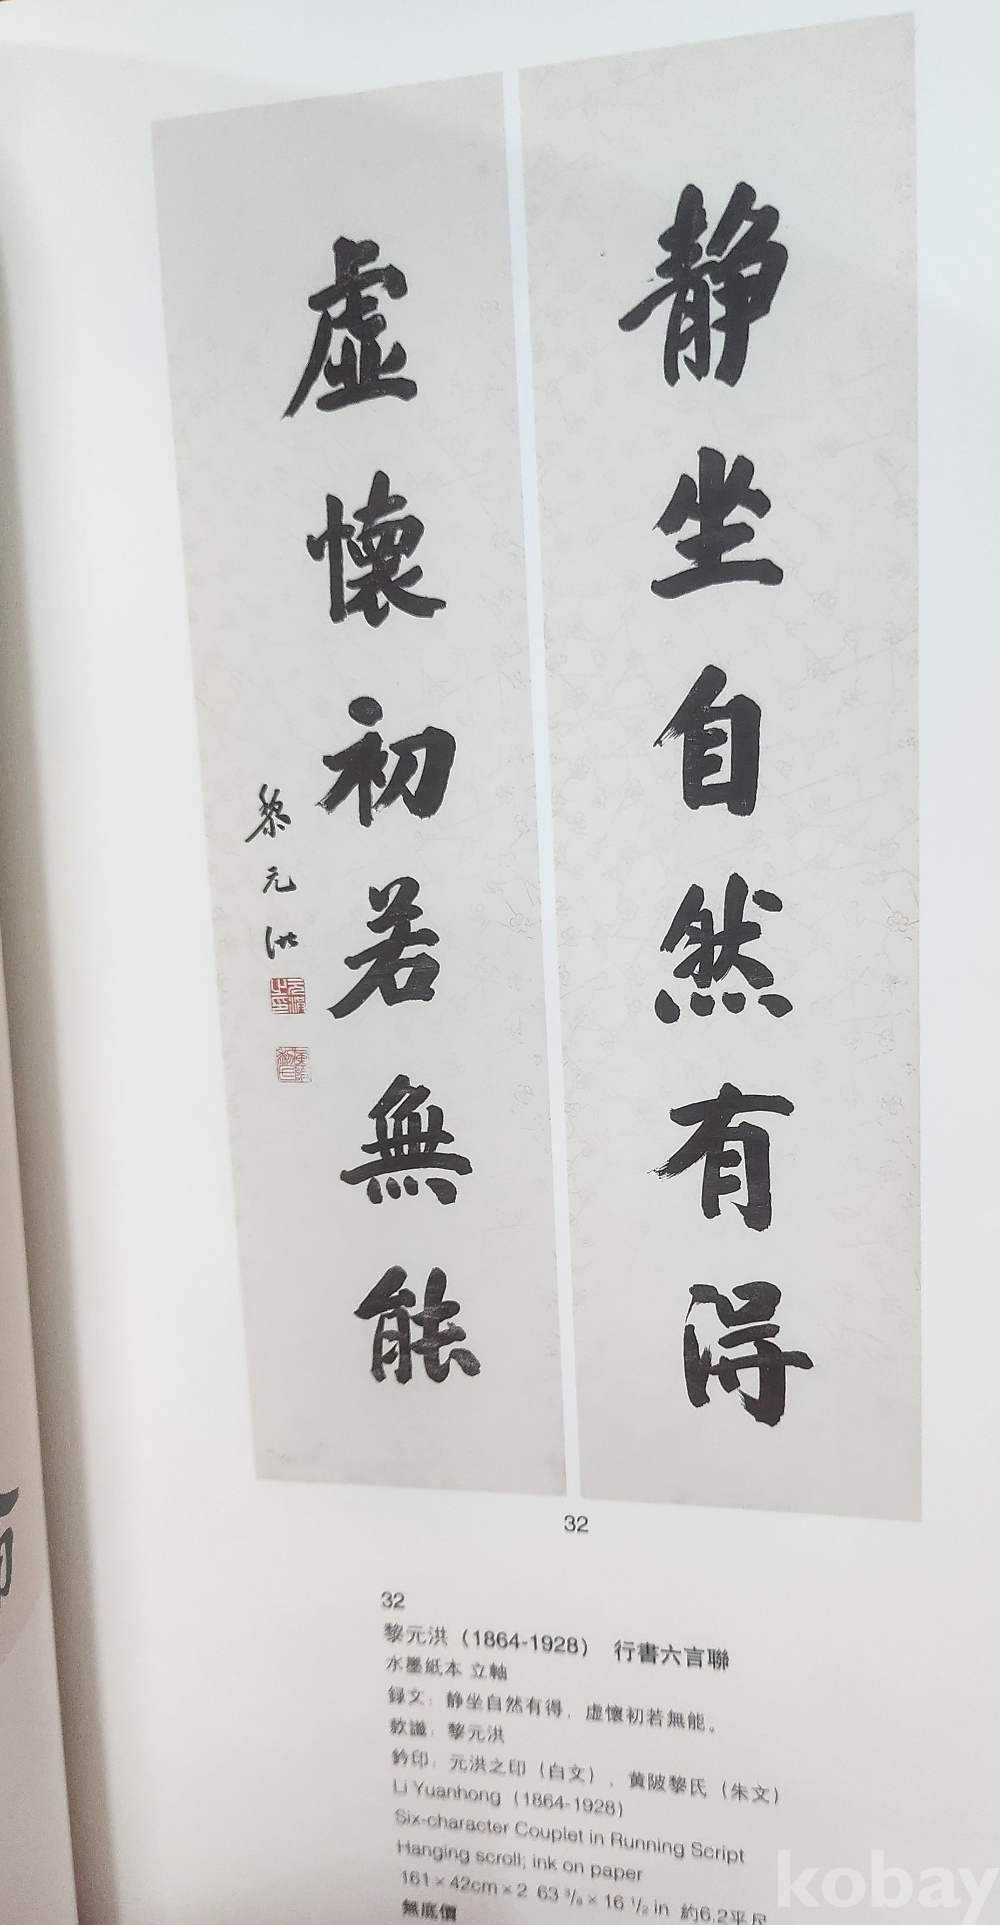 静坐自然有得
虛懷初若無能
黎元洪
元洪之印
黄陂黎氏
32
32
黎元洪（1864-1928） 行書六言聯
水墨紙本 立軸
録文：静坐自然有得，虛懷初若無能。
款識：黎元洪
鈐印：元洪之印（白文）、黄陂黎氏（朱文）
Li Yuanhong (1864-1928)
Six-character Couplet in Running Script
Hanging scroll; ink on paper
161×42cm×2 63 3/8×16 1/2 in 約6.2平尺
無底價
kobay